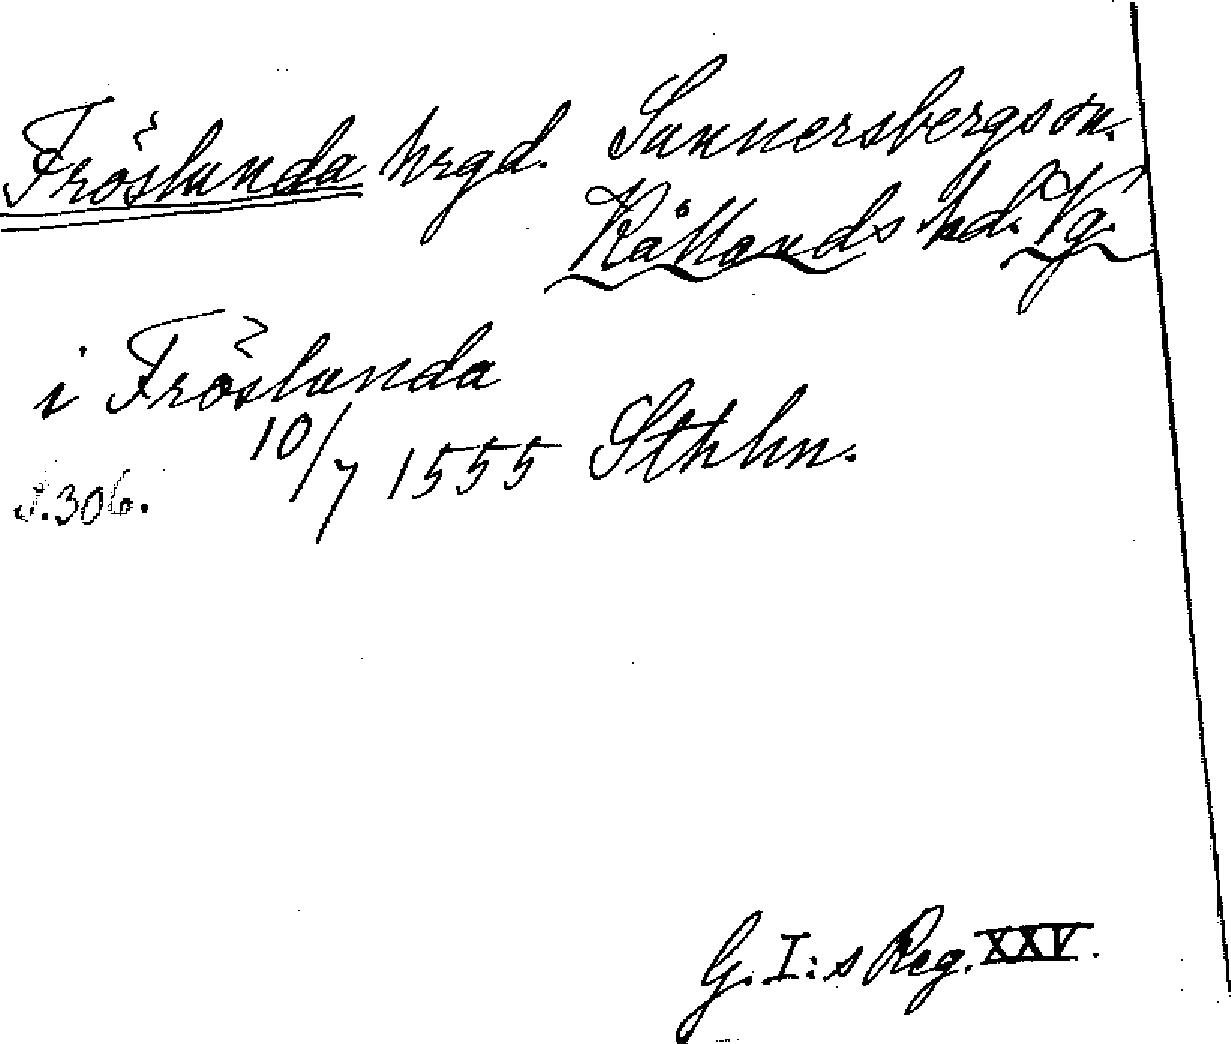 Fröslunda hrgd. Sunnersbergs sn.
Kållands hd. Vg.
i Fröslunda
10/7 1555 Sthlm.
S. 306.
G. I:s Reg. XXV.